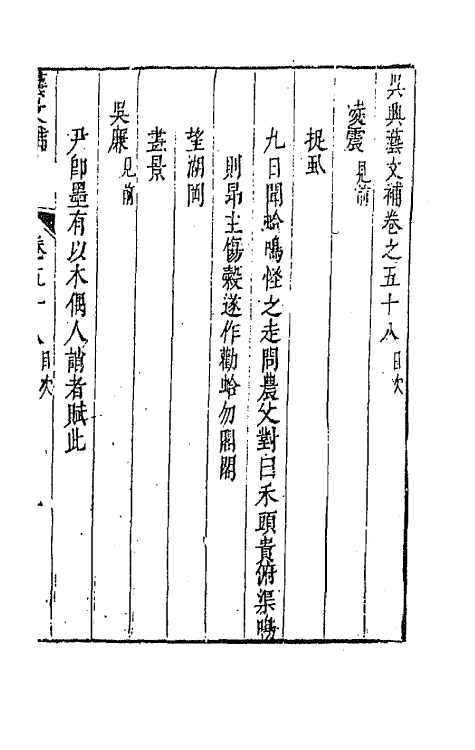 吳興藝文補卷之五十八 目次
凌震 見前
捉虱
九日聞蛤鳴怪之走問農父對曰禾頭貴俯渠鳴
則昂主傷穀遂作勸蛤勿閣閣
望湖岡
畫景
吳𪪺 見前
尹卽墨有以木偶人誚者賦此
藝文補 卷五十八 目次 一